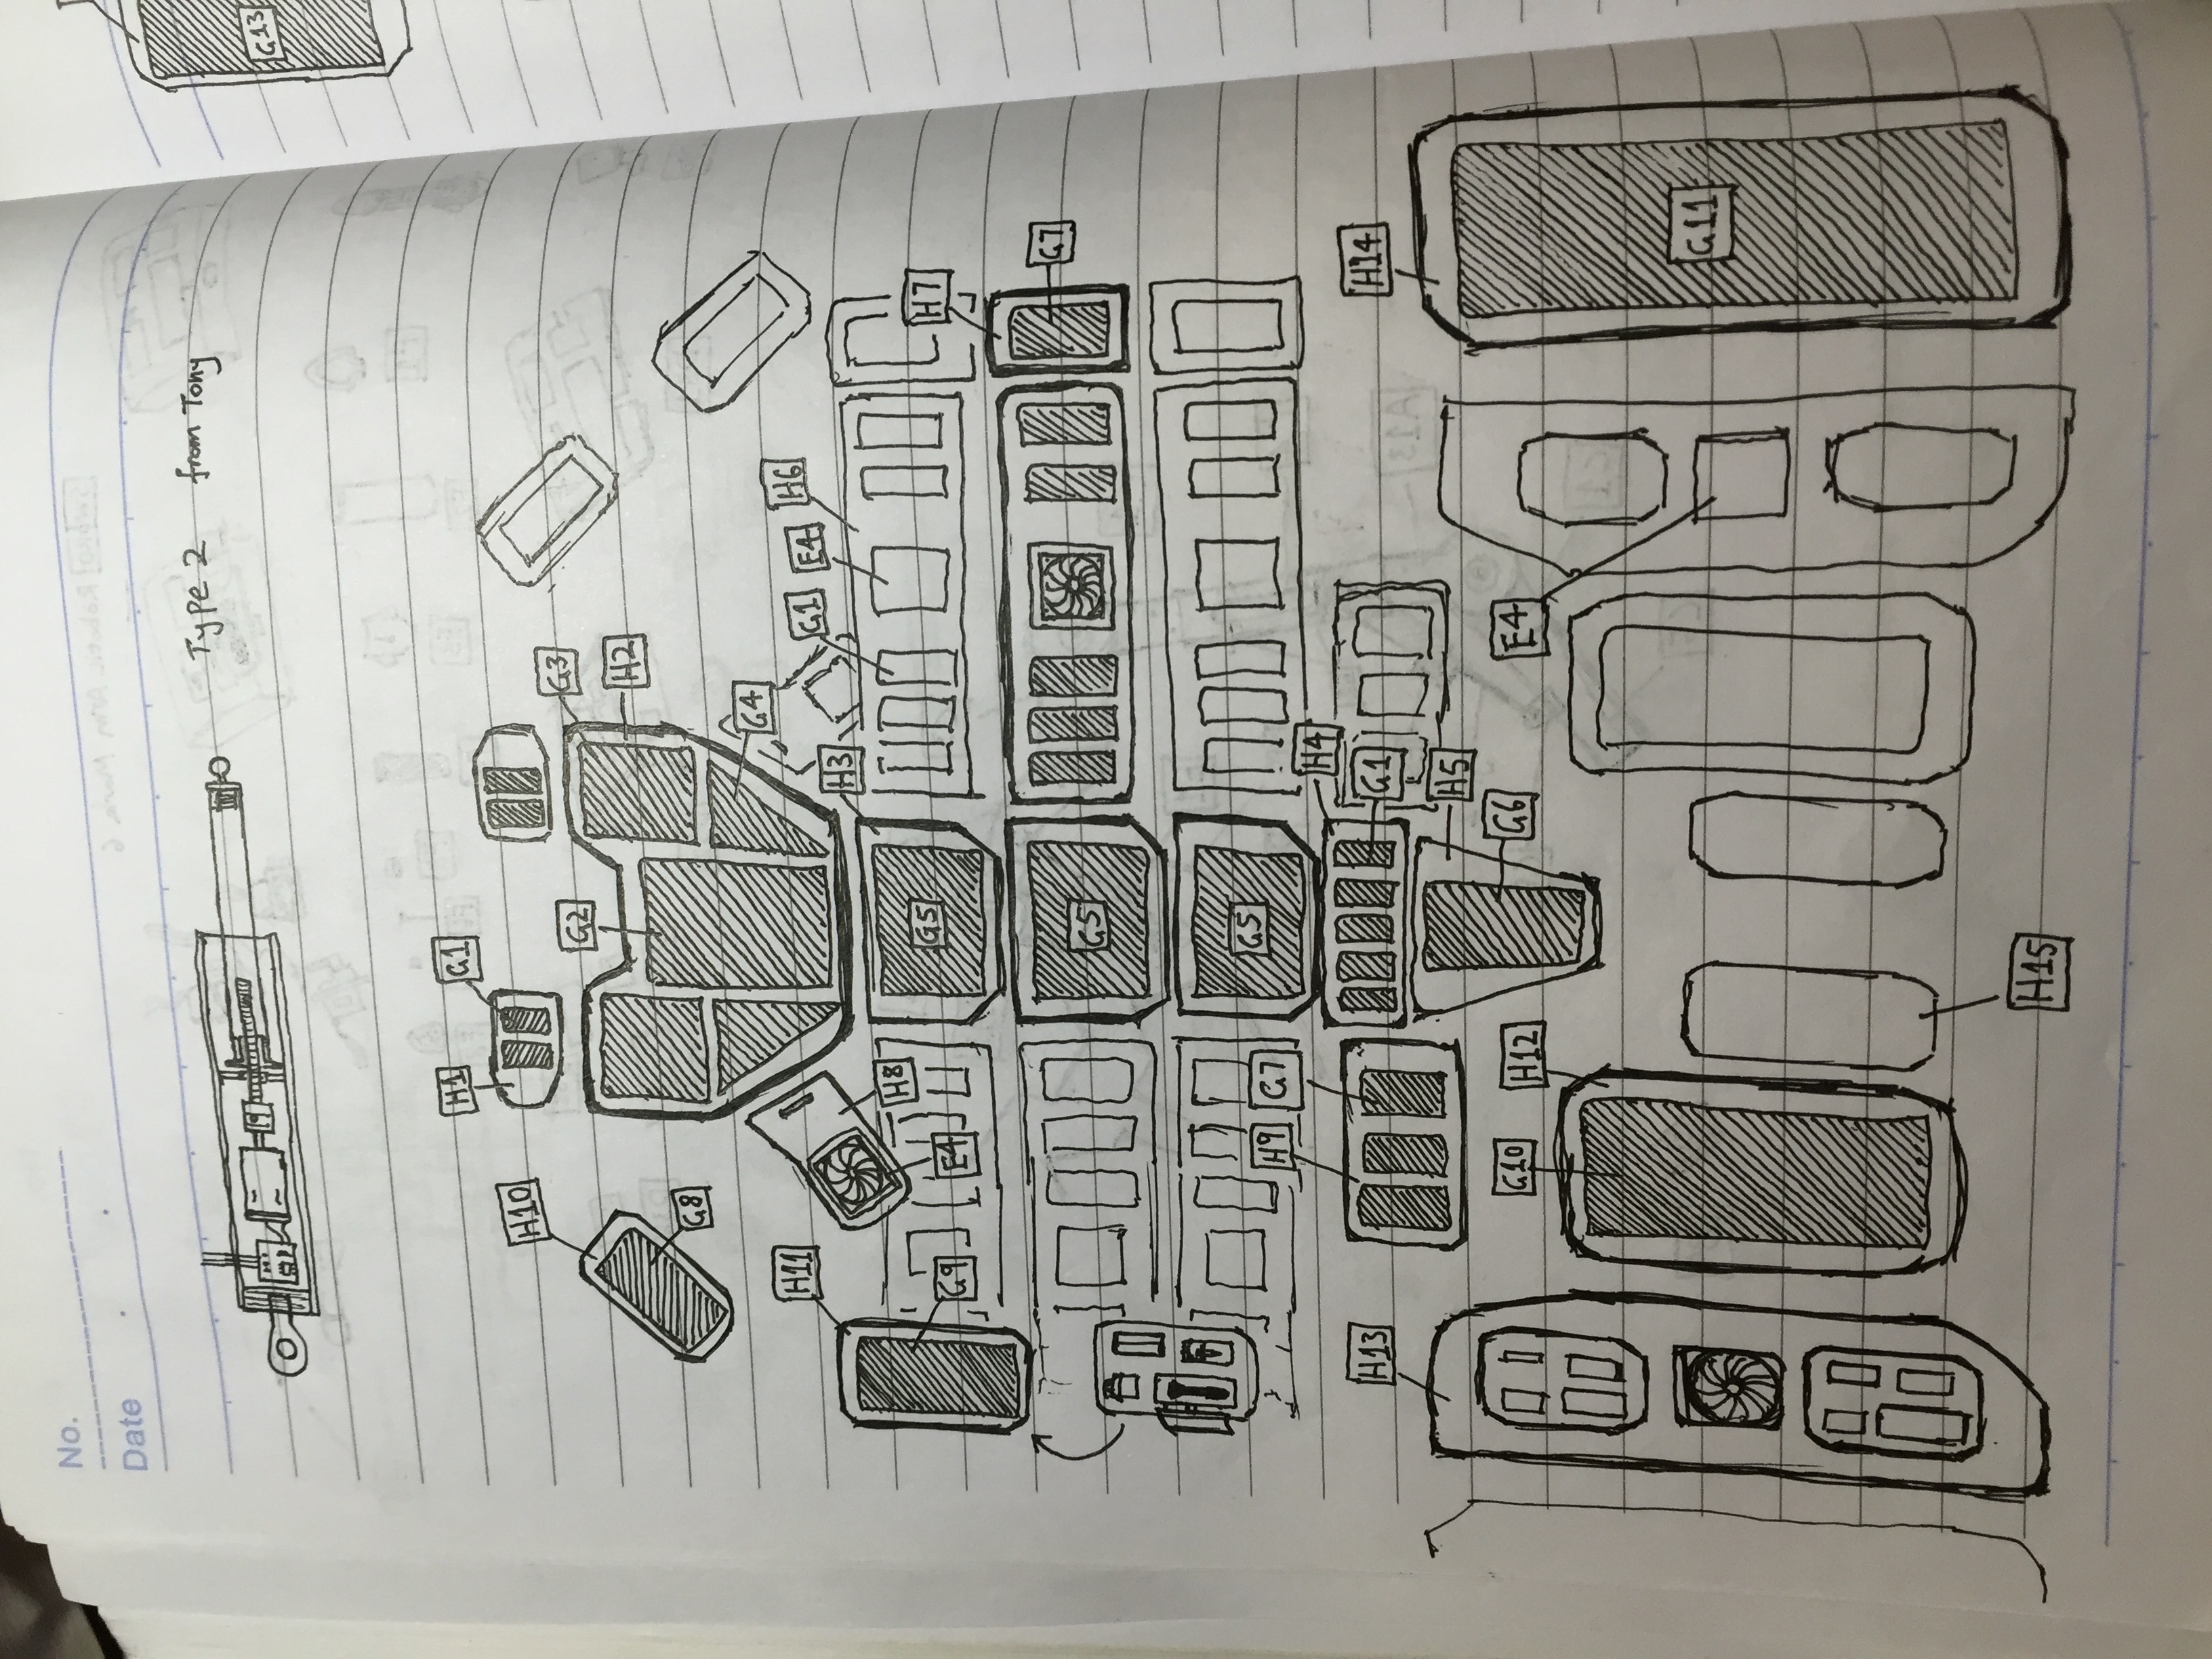 No.
Date
Type 2 from Tony
G13
H1 G1
H10
G2 G3
H2
G8
G4
H11 G1 E4 H6
H3
H8
G9 E4 G5 H7
G5 G7
G5
H9 G7
H4
H13 G1 H14
H5
G10 H12 G6 E4
G11
H15